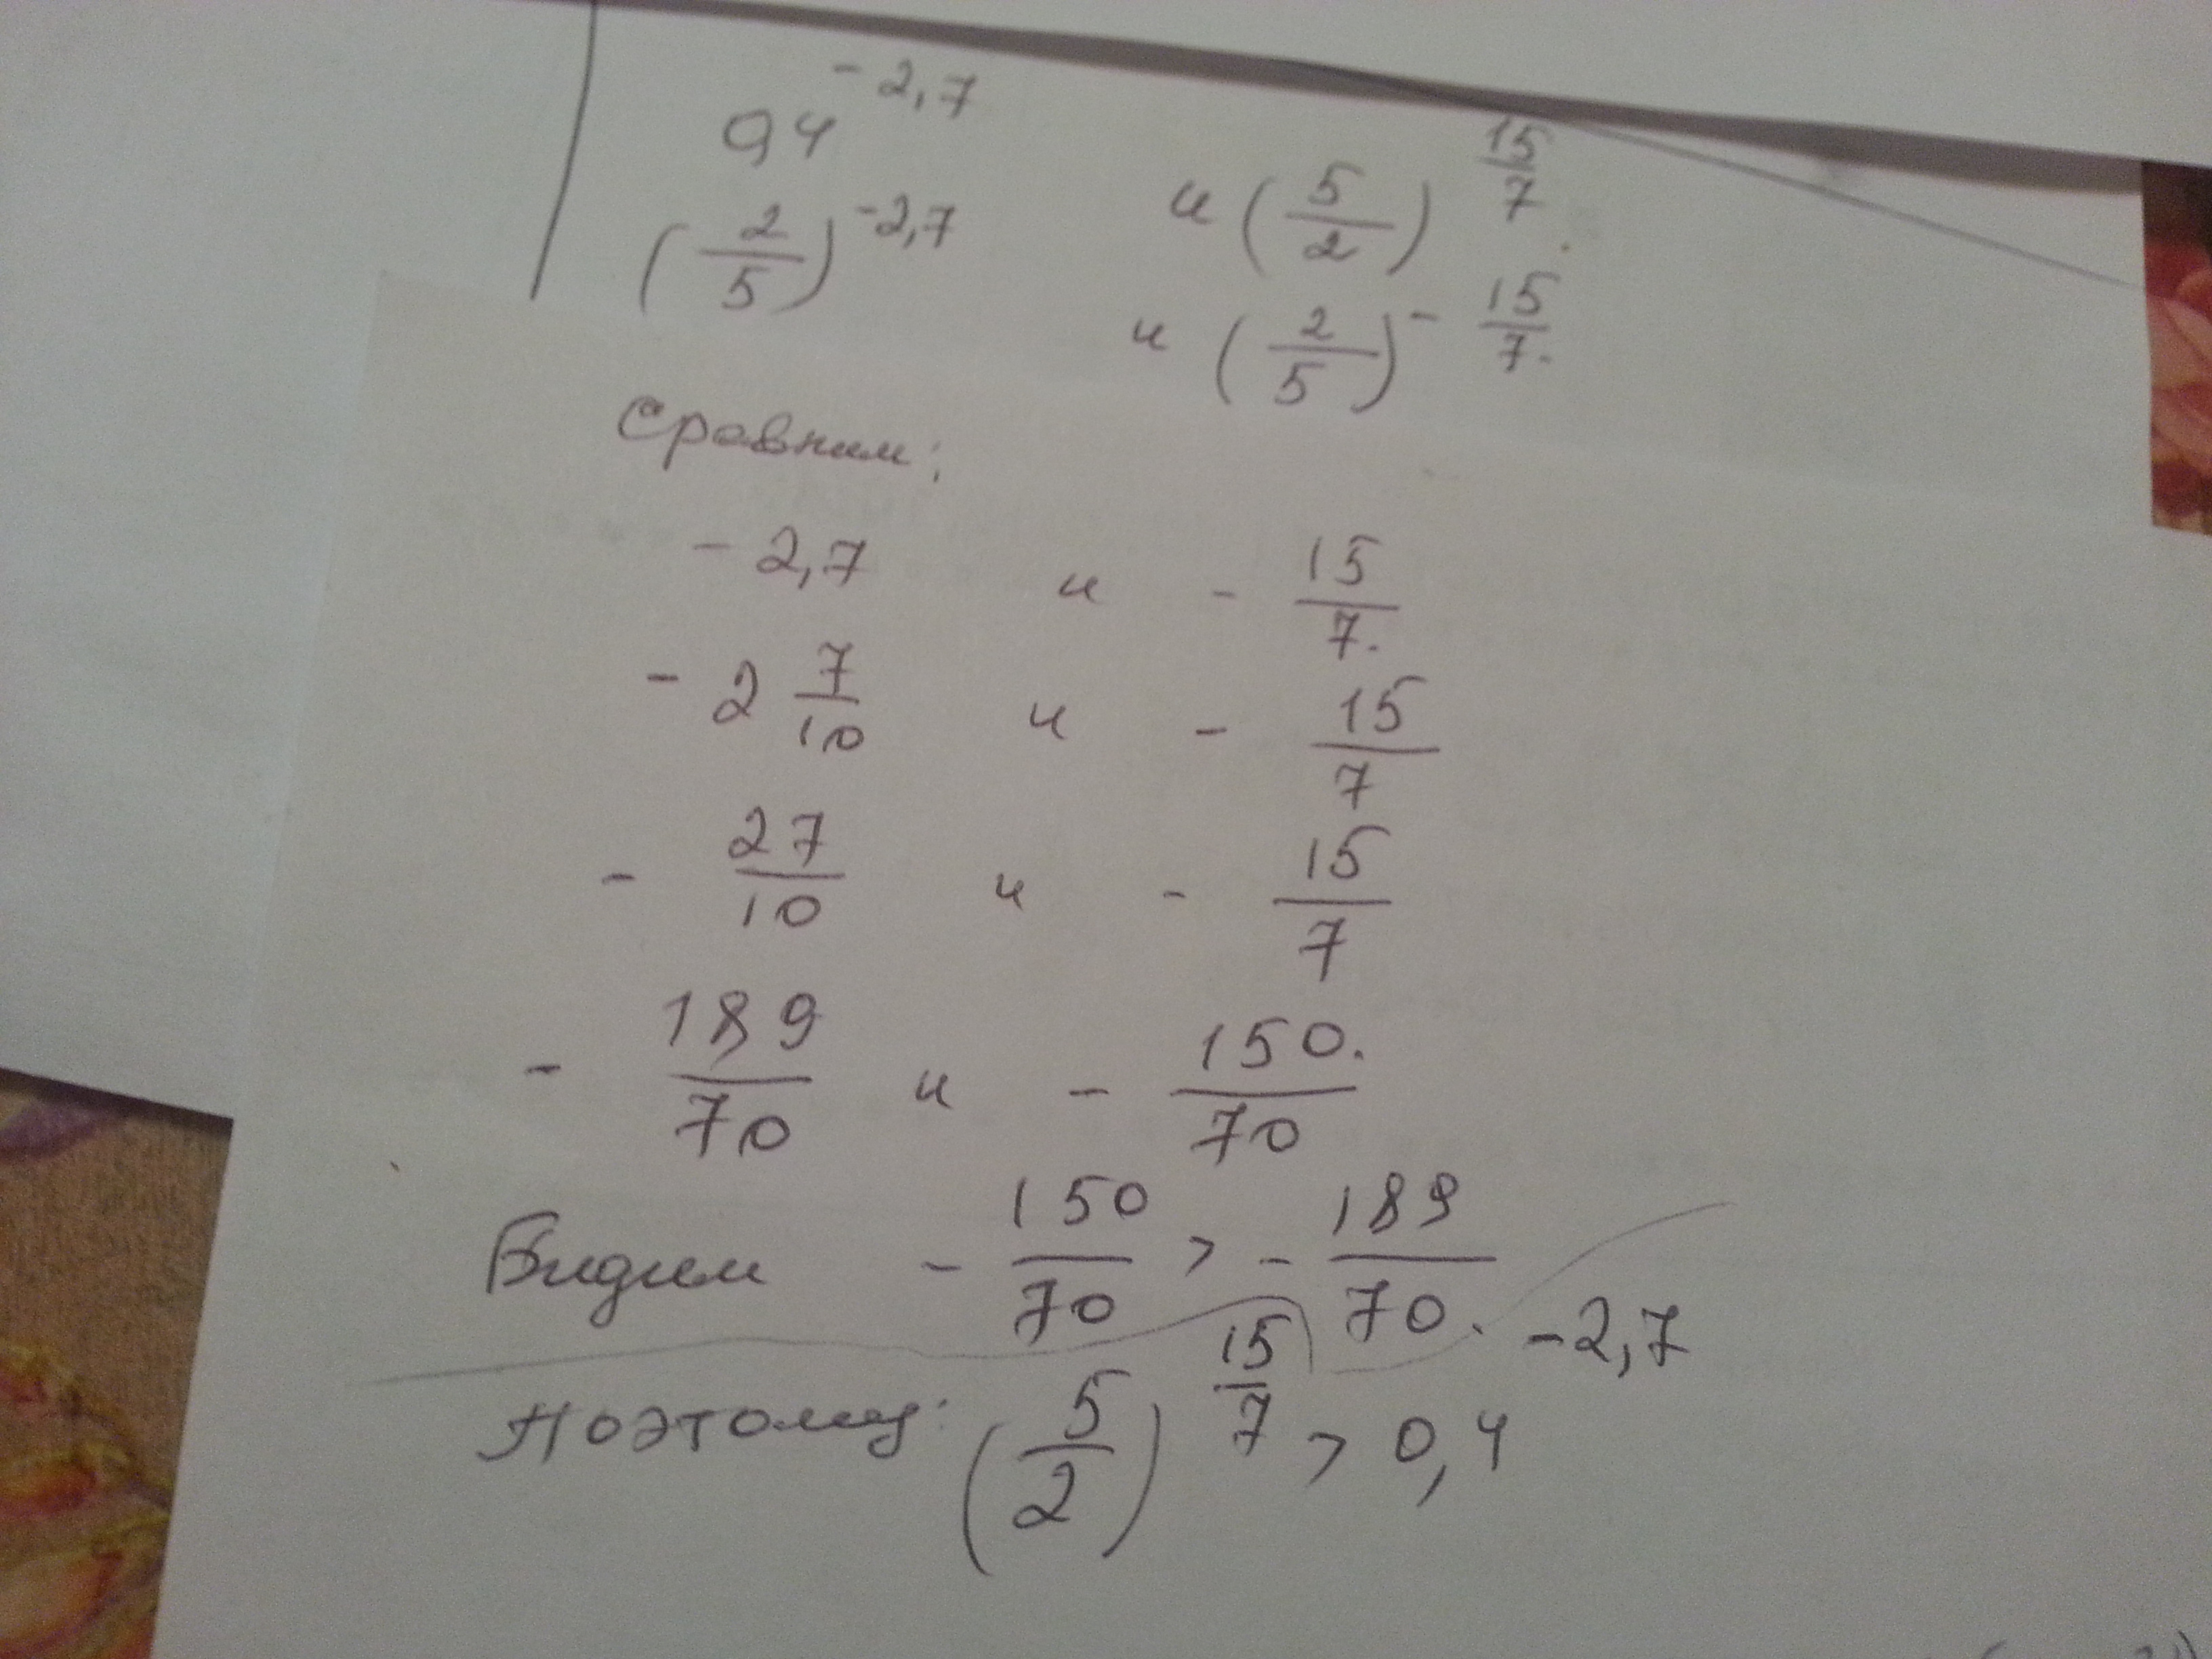 0,4^{-2,7} и (5/2)^{15/7}
(2/5)^{-2,7} и (2/5)^{-15/7}
Сравним:
-2,7 и -15/7
-2 7/10 и -15/7
-27/10 и -15/7
-189/70 и -150/70
Видим -150/70 > -189/70
Поэтому: (5/2)^{15/7} > 0,4^{-2,7}